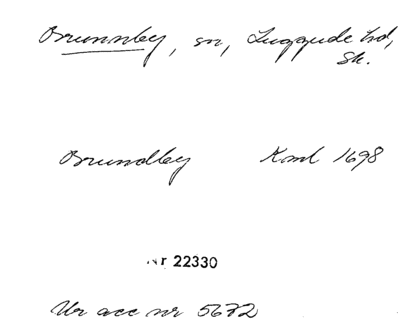 Brunnby, sn, Luggude hd,
Sk.
Brundby Kml 1698
Nr 22330
Ur acc nr 5672